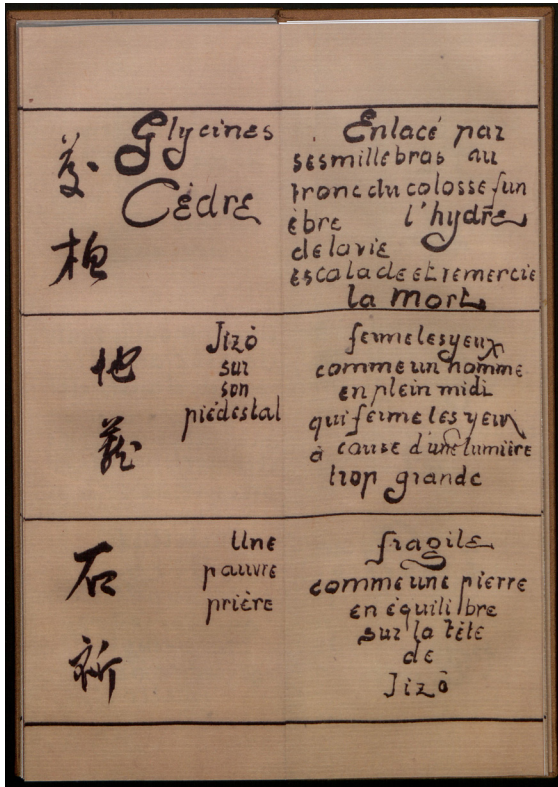 柏
Glycines
Cèdre
Enlacé par
ses mille bras au
tronc du colosse fun
èbre l'hydre
de la vie
escalade et remercie
la mort
地
蔵
Jizô
sur
son
piédestal
ferme les yeux
comme un homme
en plein midi
qui ferme les yeux
à cause d'une lumière
trop grande
石
祈
Une
pauvre
prière
fragile
comme une pierre
en équilibre
sur la tête
de
Jizô